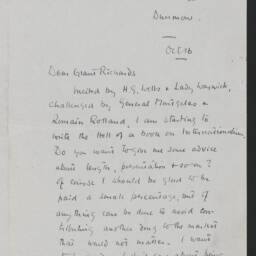 Dunmow.
Oct 16
Dear Grant Richards
Incited by H.G. Wells & Lady Warwick,
challenged by General Montgelas &
Romain Rolland, I am starting to
write the Hell of a book on Internationalism.
Do you want to give me some advice
about length, & so on?
Of course I should be glad to be
paid a small percentage, but if
anything can be done to avoid con-
tributing another dug to the market
that would not matter. I want